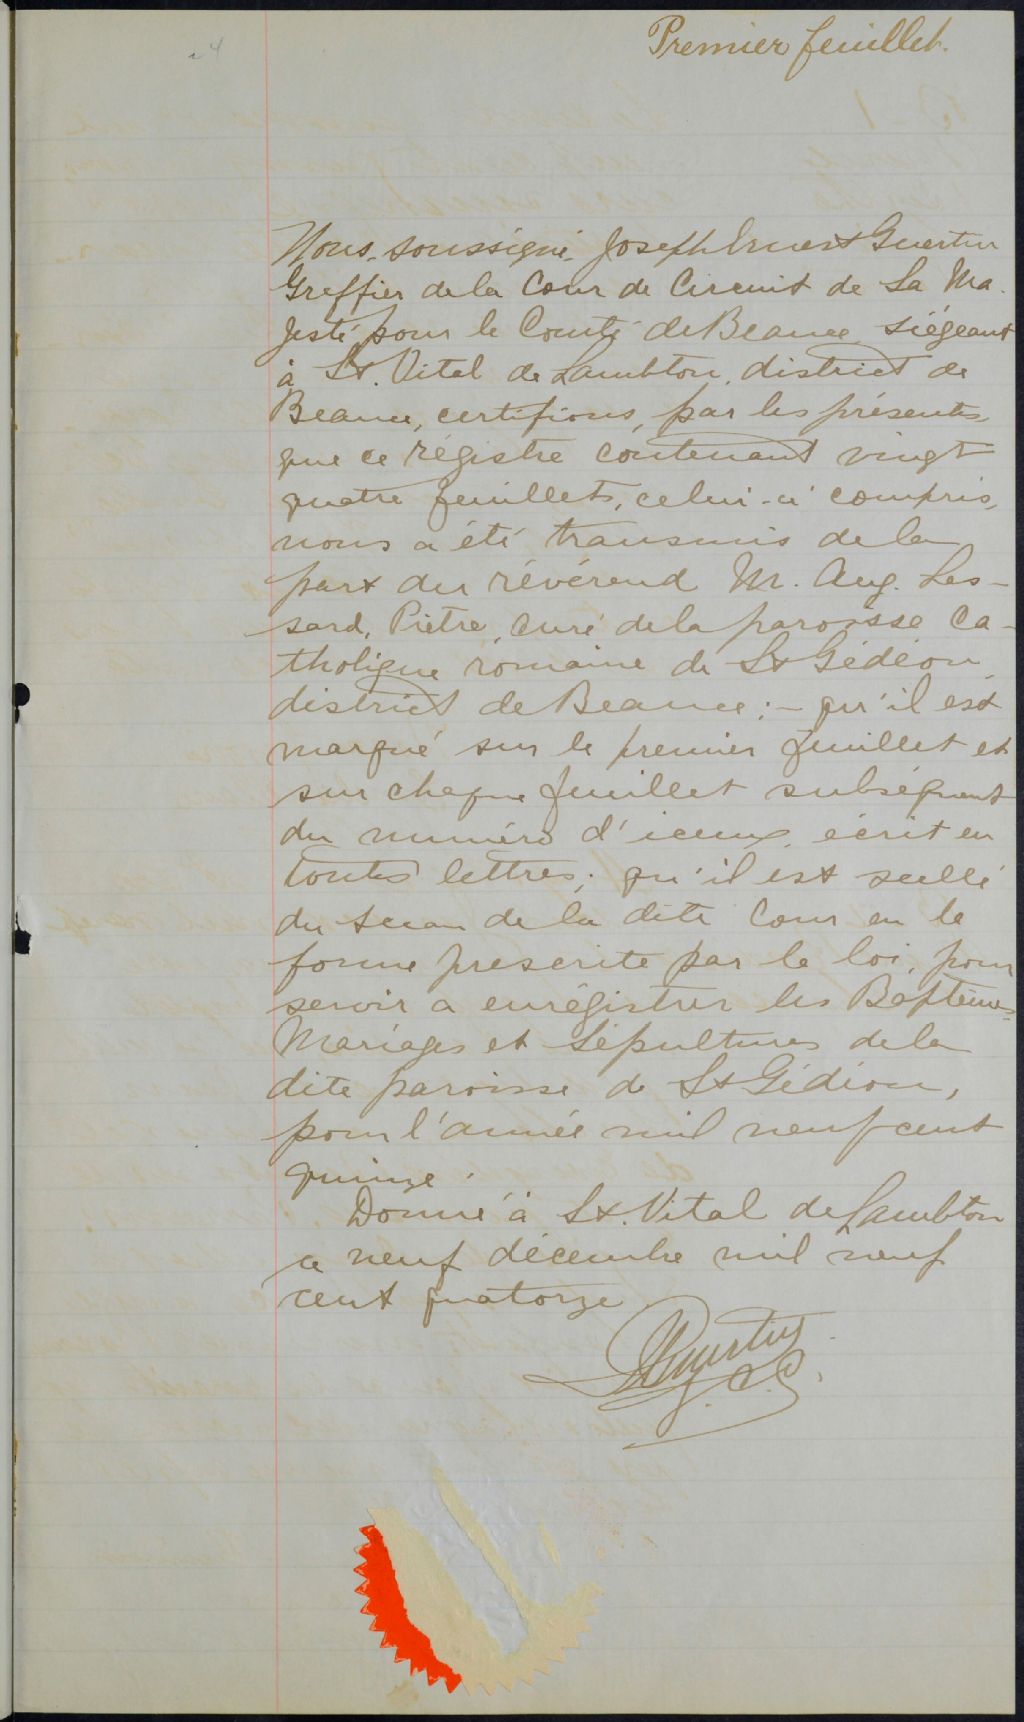 Premier feuillet.
Nous, soussigné, Joseph Ernest Guertin
Greffier de la Cour de Circuit de Sa Ma-
jesté, pour le Comté de Beauce siégeant
à St. Vital de Lambton, district de
Beauce, certifions, par les présentes
que ce régistre contenant vingt
quatre feuillets, celui-ci compris,
nous a été transmis de la
part du révérend M. Aug. Les-
sard, Prêtre, curé de la paroisse Ca-
tholique romaine de St Gédéon
district de Beauce; - qu'il est
marqué sur le premier feuillet et
sur chaque feuillet subséquent
du numéro d'iceux, écrit en
toutes lettres; qu'il est scellé
du sceau de la dite Cour en la
forme prescrite par la loi, pour
servir a enrégistrer les Baptêmes
Mariages et Sépultures de la
dite paroisse de St Gédéon,
pour l'année mil neuf cent
quinze.
Donné à St. Vital de Lambton
ce neuf décembre mil neuf
cent quatorze
Guertin